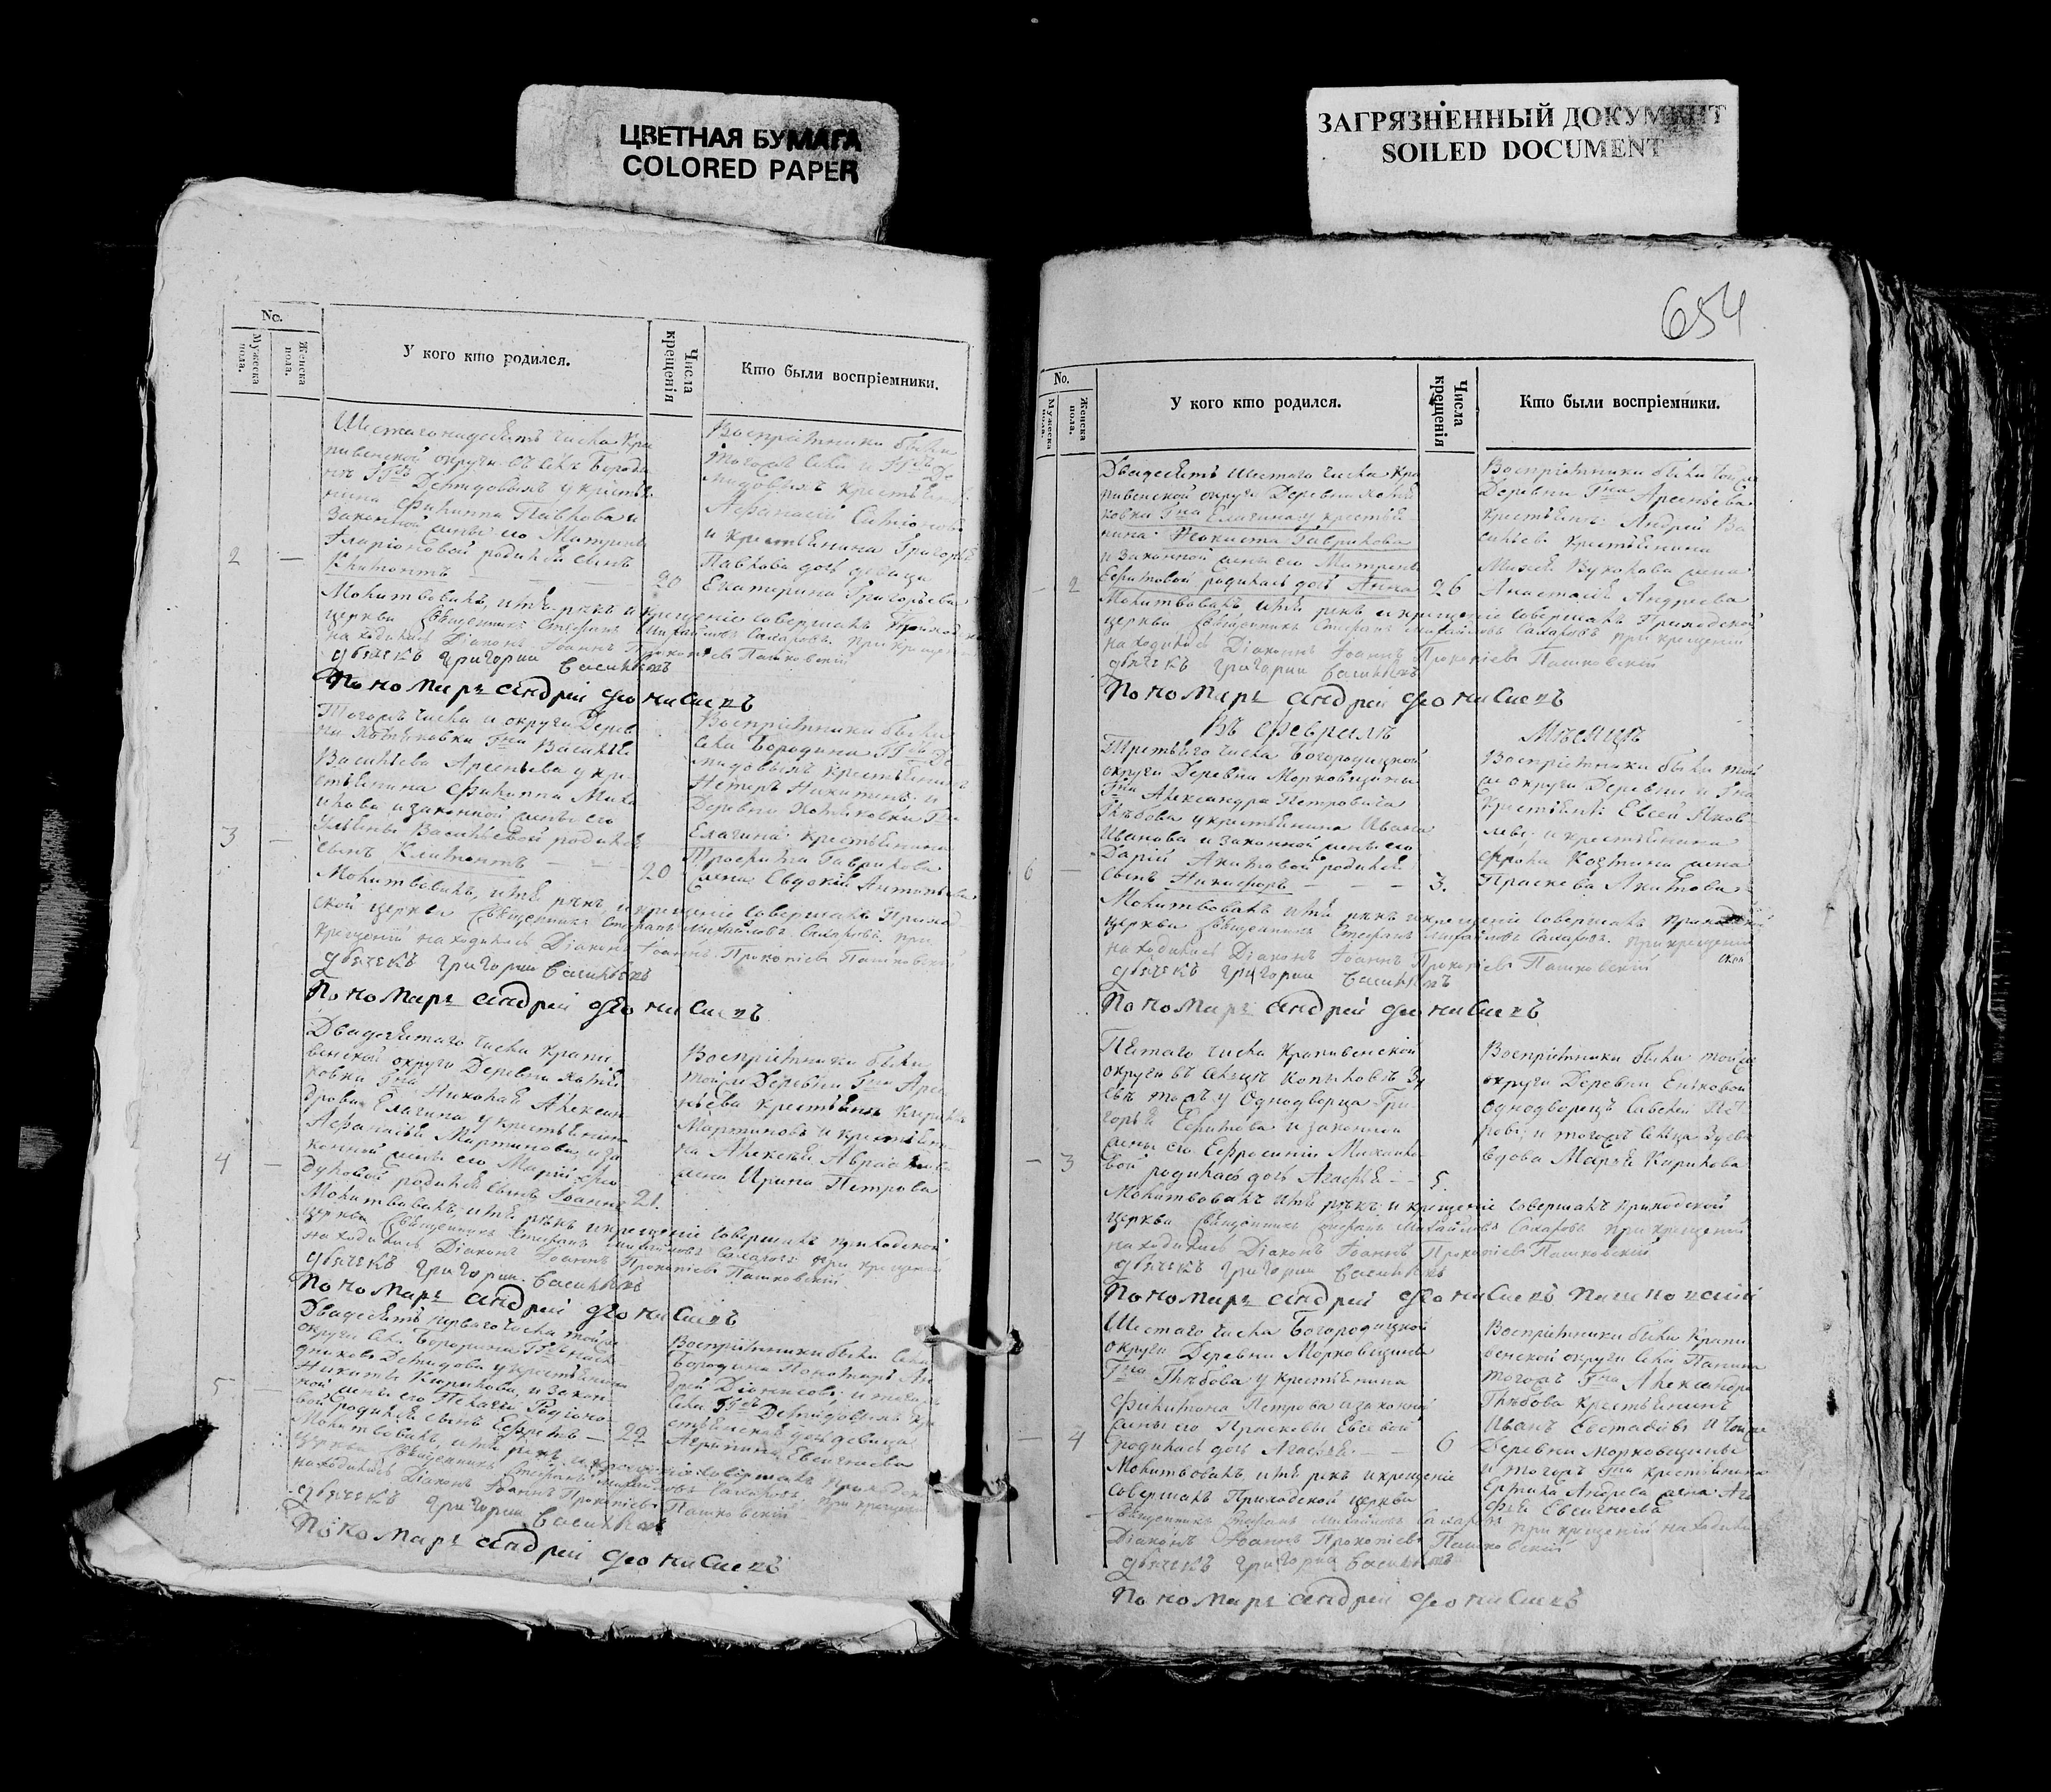 ЦВЕТНАЯ БУМАГА
COLORED PAPER
ЗАГРЯЗНЕННЫЙ ДОКУМЕНТ
SOILED DOCUMENT
654
No.
Мужеска пола.
Женска пола.
У кого кто родился.
Числа крещенія
Кто были воспріемники.
Шестагонадесять числа Кра
пивенской округи въ селѣ Бороди
нѣ Гдъ Демидовыхъ у крестья
нина Филиппа Павлова и
законной жены его Матрены
Иларіоновой родился сынъ
2
—
20
Воспріемники были
тогожъ села и Гдъ Де
мидовыхъ крестьянинъ
и крестьянина Григорья
Павлова дочь девица
Екатерина Григорьева
Молитвовалъ, имя рекъ и крещеніе совершалъ Приходской
церкви Священникъ Стефанъ Михайловъ Сахаровъ. При крещеніи
находились Діаконъ Іоаннъ Прокопіевъ Пашковскій
дьячекъ григории васильевъ
Пономарь андрей деонисиевъ
Тогожъ числа и округи Дерев
ни Гна Василья
Васильева Арсеньева у кре
стьянина Филиппа Миха
илова и законной жены его
Ульяны Васильевой родился
сынъ Климонтъ — — —
3
—
20
Воспріемники были
села Бородина Гдъ Де
мидовыхъ крестьянинъ
Петръ Никитинъ и
Елагина крестьянина
Трофима Гаврилова
жена Евдокія Антонова
Молитвовалъ, имя рекъ и крещеніе совершалъ Приход
ской церкви Священникъ Стефанъ Михайловъ Сахаровъ. При
крещеніи находились Діаконъ Іоаннъ Прокопіевъ Пашковскій
дьячекъ григории васильевъ
Пономарь андрей деонисиевъ
Двадесятаго числа Крапи
венской округи Деревни
Гна Николая Алексан
дрова Елагина у крестьянина
Афанасья Мартинова и за
конной жены его Маріи Ѳео
дуловой родился сынъ Іоаннъ
4
—
21.
Воспріемники были
тойже Деревни Гна Арсе
ньева крестьянинъ
Мартиновъ и крестьяни
на Алексея
жена Ирина Петрова
Молитвовалъ, имя рекъ и крещеніе совершалъ приходской
церкви Священникъ Стефанъ Михайловъ Сахаровъ при крещеніи
находились Діаконъ Іоаннъ Прокопіевъ Пашковскій
дьячекъ григории васильевъ
Пономарь андрей деонисиевъ
Двадесять перваго числа тойже
округи села Бородина Гдъ наслѣ
дниковъ Демидова у крестьянина
Никиты Кирилова, и закон
ной жены его Пелагеи Родіоно
вой родился сынъ Ефремъ —
5
—
22
Воспріемники были села
Бородина Пономарь Ан
дрей Діонисовъ и тогожъ
села Гдъ Демидовыхъ кре
стьянская дочь девица
Агрипина Евсигнеева
Молитвовалъ, имя рекъ и крещеніе совершалъ приходской
церкви Священникъ Стефанъ Михайловъ Сахаровъ при крещеніи
находились Діаконъ Іоаннъ Прокопіевъ Пашковскій
дьячекъ григории васильевъ
Пономарь андрей деонисиевъ
No.
Мужеска пола.
Женска пола.
У кого кто родился.
Числа крещенія
Кто были воспріемники.
Двадесять шестаго числа Кра
пивенской округи Деревни
Гна Елагина у крестья
нина Гаврилова
и законной жены его Матрены
Ефимовой родилась дочь Анна
—
2
26
Воспріемники были тойже
Деревни Гна Арсеньева
крестьянинъ Андрей Ва
сильевъ крестьянина
жена
Анастасія Андреева
Молитвовалъ, имя рекъ и крещеніе совершалъ Приходской
церкви Священникъ Стефанъ Михайловъ Сахаровъ при крещеніи
находились Діаконъ Іоаннъ Прокопіевъ Пашковскій
дьячекъ григории васильевъ
Пономарь андрей деонисиевъ
Въ Февралѣ Мѣсяцѣ
Третьяго числа Богородицкой
округи Деревни Морковщины
Гна Александра Петровича
Глѣбова у крестьянина Ивана
Иванова и законной жены его
Дарьи Акимовой родился
сынъ Никифоръ — — —
6
—
3.
Воспріемники были той
же округи Деревни и Гна
крестьянинъ Евсей Яков
левъ и крестьянина
Фрола Козмина жена
Праскева Акимова
Молитвовалъ имя рекъ и крещеніе совершалъ приходской
церкви Священникъ Стефанъ Михайловъ Сахаровъ. при крещеніи
находились Діаконъ Іоаннъ Прокопіевъ Пашковскій
дьячекъ григории васильевъ
Пономарь андрей деонисиевъ
Пятаго числа Крапивенской
округи въ сельцѣ
у Однодворца Гри
горья Ефимова и законной
жены его Ефросиніи Михайло
вой родилась дочь Агафья — —
—
3
5.
Воспріемники были тойже
округи Деревни
Однодворецъ Савелей Пет
ровъ; и тогожъ сельца Зуева
вдова Марья Кирилова
Молитвовалъ имя рекъ и крещеніе совершалъ приходской
церкви Священникъ Стефанъ Михайловъ Сахаровъ при крещеніи
находились Діаконъ Іоаннъ Прокопіевъ Пашковскій
дьячекъ григории васильевъ
Пономарь андрей деонисиевъ
Шестаго числа Богородицкой
округи Деревни Морковщины
Гна Глѣбова у крестьянина
Филимона Петрова и законной
жены его Прасковьи Евсевой
родилась дочь Агафья — —
—
4
6
Воспріемники были Крапи
венской округи села Панина
тогожъ Гна Александра
Глѣбова крестьянинъ
Иванъ Евстафіевъ и тойже
Деревни Морковщины
и тогожъ Гна крестьянина
Ермила Андреева жена Ага
фья Евсигнеева
Молитвовалъ, имя рекъ и крещеніе
совершалъ Приходской церкви
Священникъ Стефанъ Михайловъ Сахаровъ при крещеніи находились
Діаконъ Іоаннъ Прокопіевъ Пашковскій
дьячекъ григории васильевъ
Пономарь андрей деонисиевъ